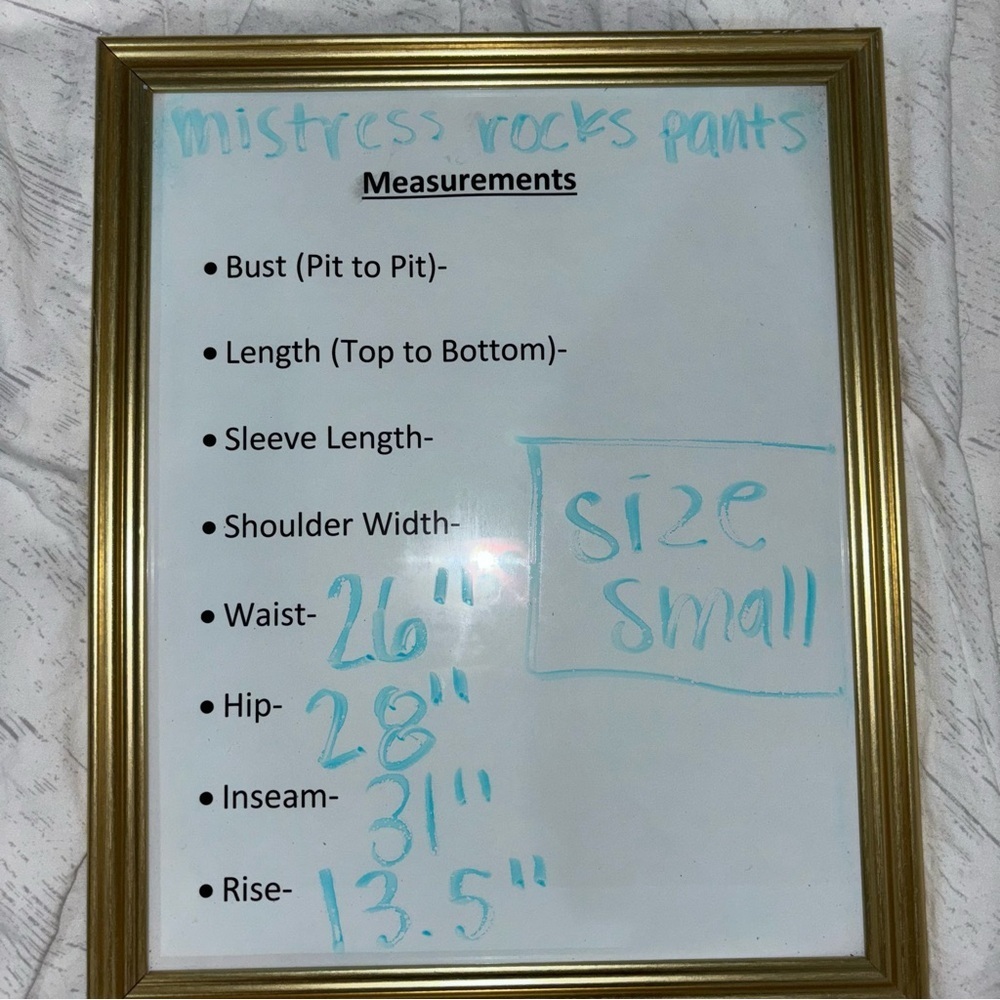 mistress rocks pants
Measurements
• Bust (Pit to Pit)-
• Length (Top to Bottom)-
• Sleeve Length-
• Shoulder Width-
size
small
• Waist- 26"
• Hip- 28"
• Inseam- 31"
• Rise- 13.5"